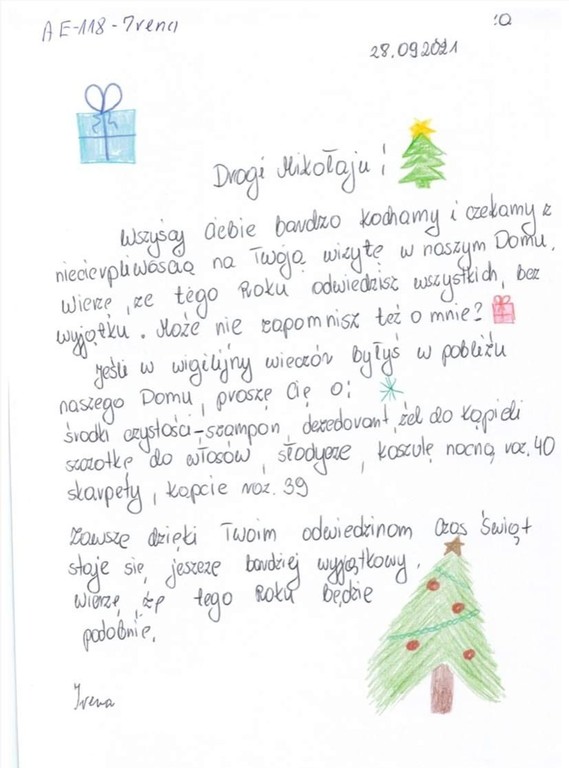 AE-118-Irena
:Q
28.09.2021
Drogi Mikołaju!
Wszyscy Ciebie bardzo kochamy i czekamy z
niecierpliwością na Twoją wizytę w naszym Domu.
Wierzę, że tego Roku odwiedzisz wszystkich, bez
wyjątku. Może nie zapomnisz też o mnie?
Jeśli w wigilijny wieczór byłyś w pobliżu
naszego Domu, proszę Cię o:
środki czystości-szampon, dezedorant, żel do kąpieli
szczotkę do włosów, słodycze, koszulę nocną roz. 40
skarpety, kapcie roz. 39
Zawsze dzięki Twoim odwiedzinom czas Świąt
staje się, jeszcze bardziej wyjątkowy.
Wierzę, że tego Roku będzie
podobnie.
Irena